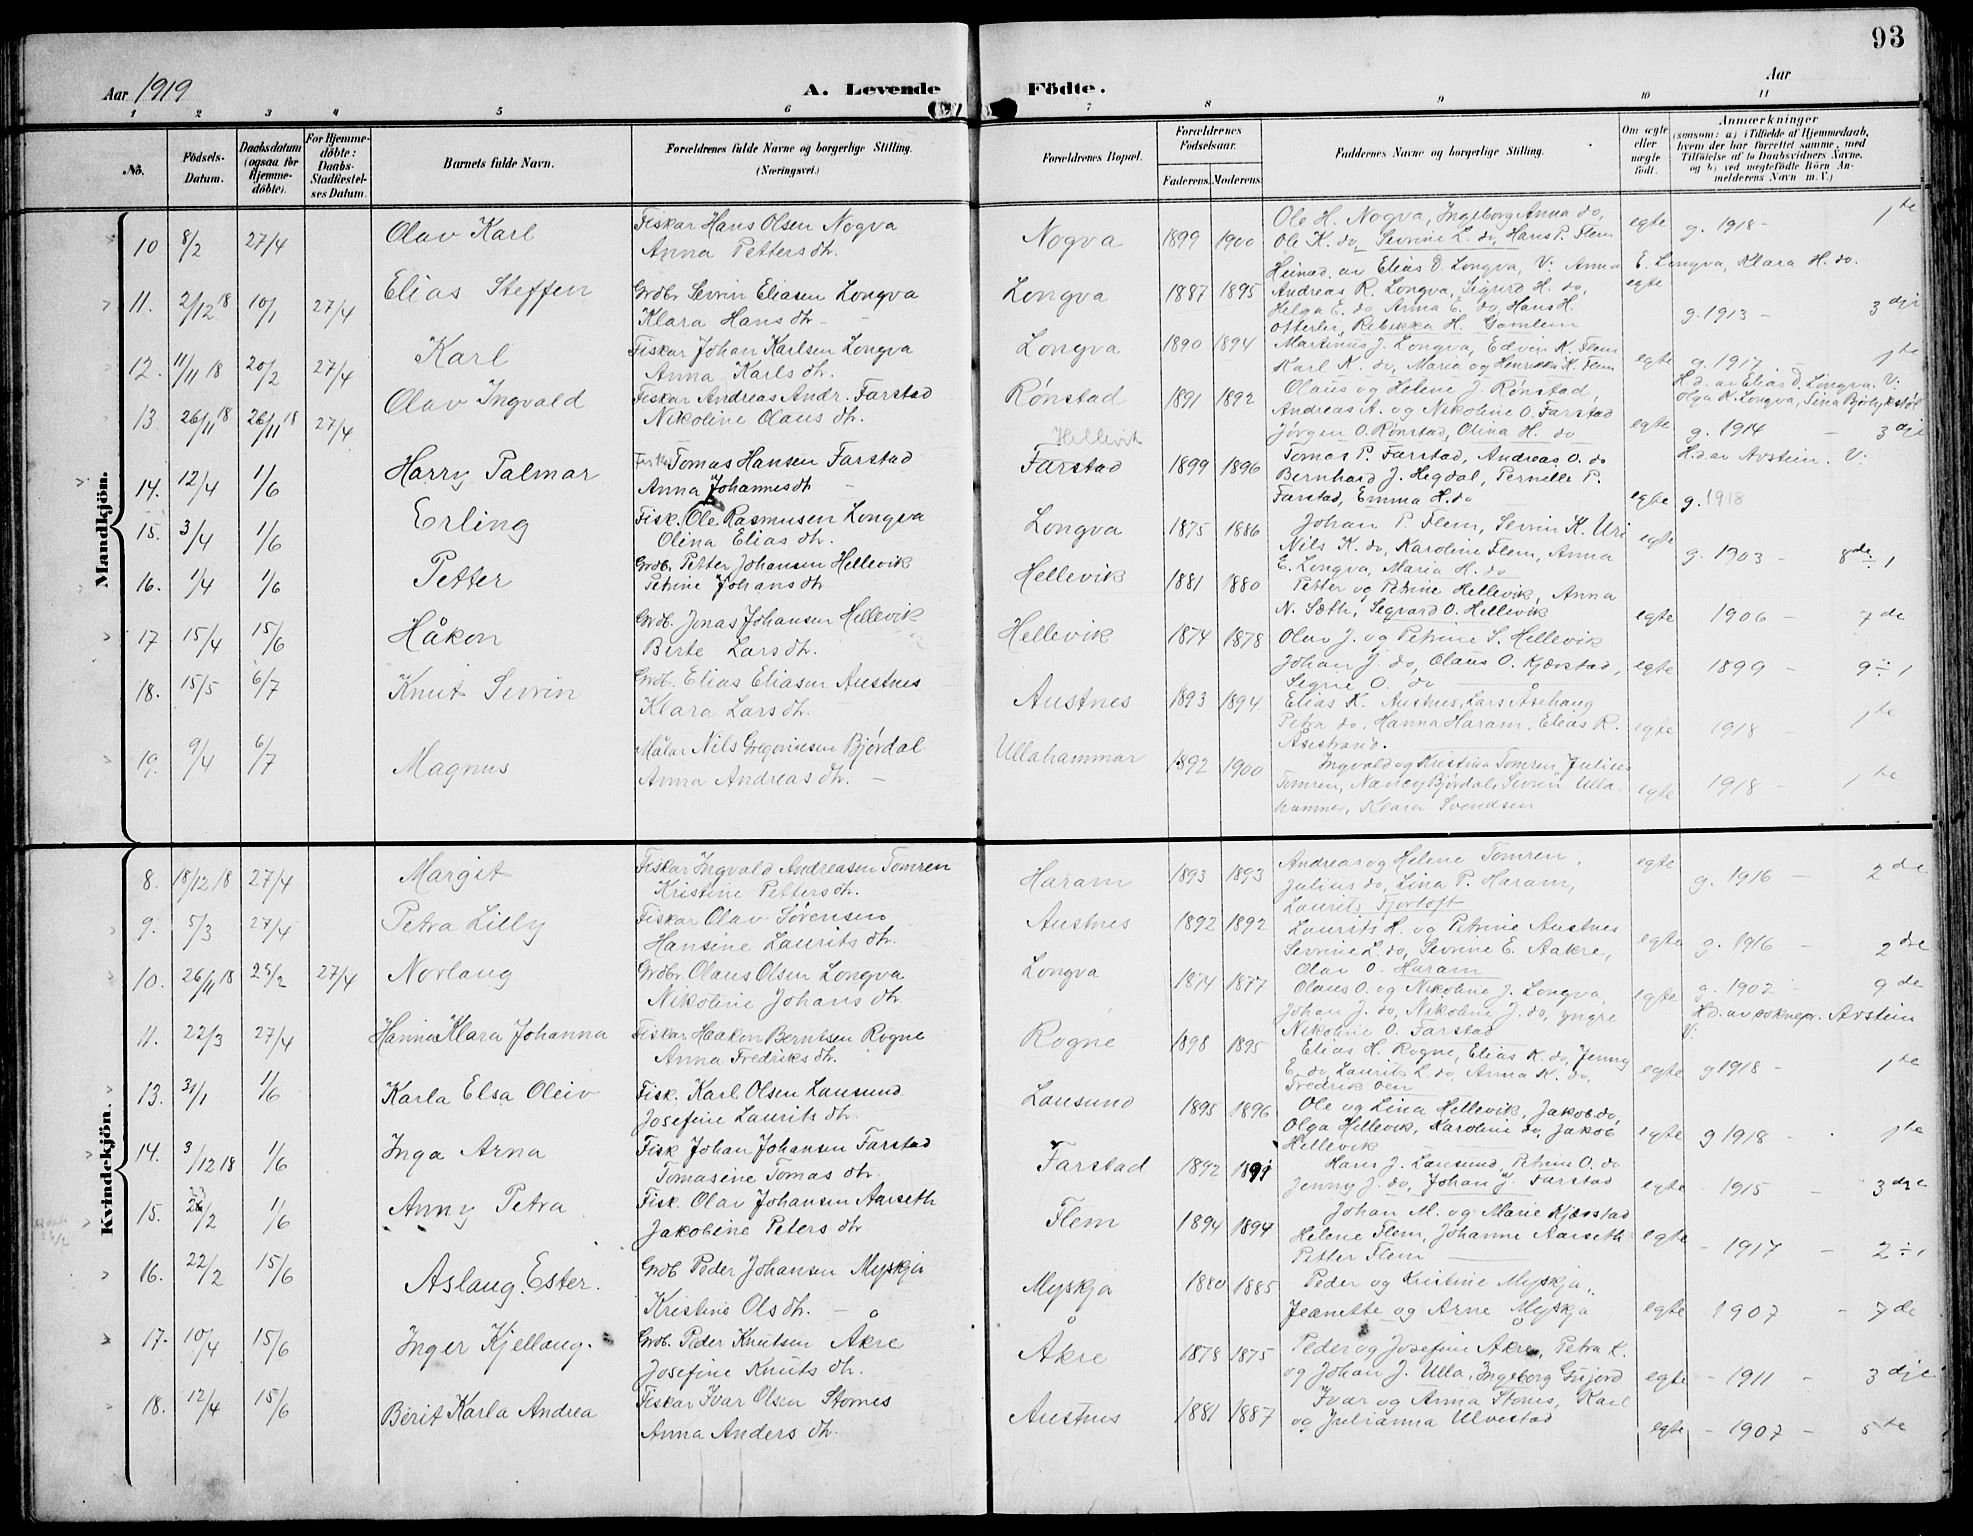 93
Aar 1919
A. Levende Födte.
Aar
1 2 3 4 5 6 7 8 9 10 11
No.
Födsels-Datum.
Daabsdatum (ogsaa for Hjemme-döbte).
For Hjemme-döbte: Daabs-Stadfæstel-ses Datum.
Barnets fulde Navn.
Forældrenes fulde Navne og borgerlige Stilling. (Næringsvei.)
Forældrenes Bopæl.
Forældrenes Födselsaar.
Faderens. Moderens.
Faddernes Navne og borgerlige Stilling.
Om ægte eller uægte födt.
Anmerkninger
(saasom: a) i Tilfælde af Hjemmedaab, hvem der har forrettet samme, med Tilföielse af to Daabsvidners Navne, og b) ved uegtefödte Börn An-melderens Navn m. V.)
Mandkjön.
10 8/2 27/4 Olav Karl Fiskar Hans Olsen Nogva Anna Pettersdtr. Nogva 1899 1900 Ole H. Nogva, Ingeborg Anna do, Ole K. do, Sevrine L. do, Hans P. Flem egte g. 1918 - 1te
Heimed. av Elias D. Longva, V: Anna E. Longva, Klara H. do.
11. 2/12 18 10/1 27/4 Elias Steffen Grdbr. Sevrin Eliasen Longva Klara Hansdtr. - Longva 1887 1895 Andreas R. Longva, Sigurd H. do, Helga E. do, Anna E. do, Hans H. Otterlei, Rebekka H. Gamlem egte g. 1913 - 3dje
12. 11/11 18 20/2 27/4 Karl Fiskar Johan Karlsen Longva Anna Karlsdtr. Longva 1890 1894 Martinus J. Longva, Edvin K. Flem Karl K. do, Maria og Henrikka K. Flem egte g. 1917 - 1te
13. 26/11 18 26/11 18 27/4 Olav Ingvald Fiskar Andreas Andr. Farstad Nikoline Olausdtr. Rønstad 1891 1892 Olaus og Helene J. Rønstad, Andreas A. og Nikoline O. Farstad Jørgen O. Rønstad, Olina H. do egte H.d. av Elias D. Longva. V: Olga K. Longva, g. 1914 - 3dje
14. 12/4 1/6 Harry Palmar Fisk. Tomas Hansen Farstad Anna Johannesdtr - Hellevik Farstad 1899 1896 Tomas P. Farstad, Andreas O. do Bernhard J. Hegdal, Pernille P. Farstad, Emma H. do egte H.d. av Avstein. V: g. 1918
15. 3/4 1/6 Erling Fisk. Ole Rasmusen Longva Olina Eliasdtr. Longva 1875 1886 Johan P. Flem, Sevrin K. Uri Nils K. do, Karoline Flem, Anna E. Longva, Maria H. do egte g. 1903 - 8de ÷ 1
16. 1/4 1/6 Petter Grdb. Petter Johansen Hellevik Petrine Johansdtr Hellevik 1881 1880 Petter og Petrine Hellevik, Anna N. Sæth, Segvard O. Hellevik egte 1906 - 7de
17 15/4 15/6 Håkon Grdb. Jonas Johansen Hellevik Birte Larsdtr. Hellevik 1874 1878 Olav J. og Petrine S. Hellevik Johan J. do, Olaus O. Kjærstad, Signe O. do egte 1899 - 9 ÷ 1
18. 15/5 6/7 Knut Sevrin Grdb. Elias Eliasen Austnes Klara Larsdtr. Austnes 1893 1894 Elias K. Austnes, Lars Åsehaug Petra do, Hanna Haram, Elias R. Åsestrand. egte 1918 - 1te
19. 9/4 6/7 Magnus Målar Nils Gregoriussen Bjørdal Anna Andreasdtr. - Ullahammar 1892 1900 Ingvald og Kristina Tomren, Julius Tomren, Nancy Bjørdal, Sevrin Ulla-hammer, Klara Svendsen egte 1918 - 1te
Kvindekjön.
8. 18/12 18 27/4 Margit Fiskar Ingvald Andreasen Tomren Kristine Pettersdtr. Haram 1893 1893 Andreas og Helene Tomren, Julius do, Lina P. Haram, Laurits Fjørtoft egte g. 1916 - 2dre
9. 5/3 27/4 Petra Lilly Fiskar Olav Sørensen Hansine Lauritsdtr. Austnes 1892 1892 Laurits H. og Petrine Austnes Sevrine L. do, Sevrine E. Aakre, Olav O. Haram egte g. 1916 - 2dre
10. 26/11 18 25/2 27/4 Norlaug Grdbr. Olaus Olsen Longva Nikoline Johansdtr Longva 1874 1877 Olaus O. og Nikoline J. Longva, Johan J. do, Nikoline J. do, yngre Nikoline O. Farstad egte g. 1902 - 9de
H.d. av soknepr. Avstein V:
11. 22/3 27/4 Hanna Klara Johanna Fiskar Haakon Berntsen Rogne Anna Fredriksdtr. Rogne 1898 1895 Elias H. Rogne, Elias K. do, Jenny E. do, Laurits L. do, Anna K. do, Fredrik Oen egte g 1918 - 1te
13. 31/1 1/6 Karla Elsa Oleiv Fisk. Karl Olsen Lausund Josefine Lauritsdtr. Lausund 1895 1896 Ole og Lina Hellevik, Jakob do, Olga Hellevik, Karoline do, Jakob Hellevik egte g 1918 - 1te
14. 3/12 18 1/6 Inga Arna Fisk Johan Johansen Farstad Tomasine Tomasdtr. Farstad 1892 1891 Hans J. Lausund, Petrine O. do Jenny J. do, Johan J. Farstad egte - 1915 - 3dje
15. 2/2 1/6 Anny Petra Fisk. Olav Johansen Aarseth Jakobine Petersdtr Flem 1894 1894 Johan M. og Marie Kjærstad Helene Flem, Johanne Aarseth Petter Flem egte - 1917 - 2 ÷ 1
16. 22/2 15/6 Aslaug Ester. Grdb Peder Johansen Myskja Kristine Olsdtr. - Myskja 1880 1885 Peder og Kristine Myskja, Jeanette og Arne Myskja egte - 1907 - 7de
17. 10/4 15/6 Inger Kjellaug. Grdb. Peder Knutsen Åkre Josefine Knutsdtr. Åkre 1878 1875 Peder og Josefine Åkre, Petra K. og Johan J. Ulla, Ingeborg Gusjord egte - 1911 - 3dje
18. 12/4 15/6 Berit Karla Andrea Fiskar Ivar Olsen Stornes Anna Andersdtr. Austnes 1881 1887 Ivar og Anna Stornes, Karl og Julianna Ulvestad egte - 1907 - 5te